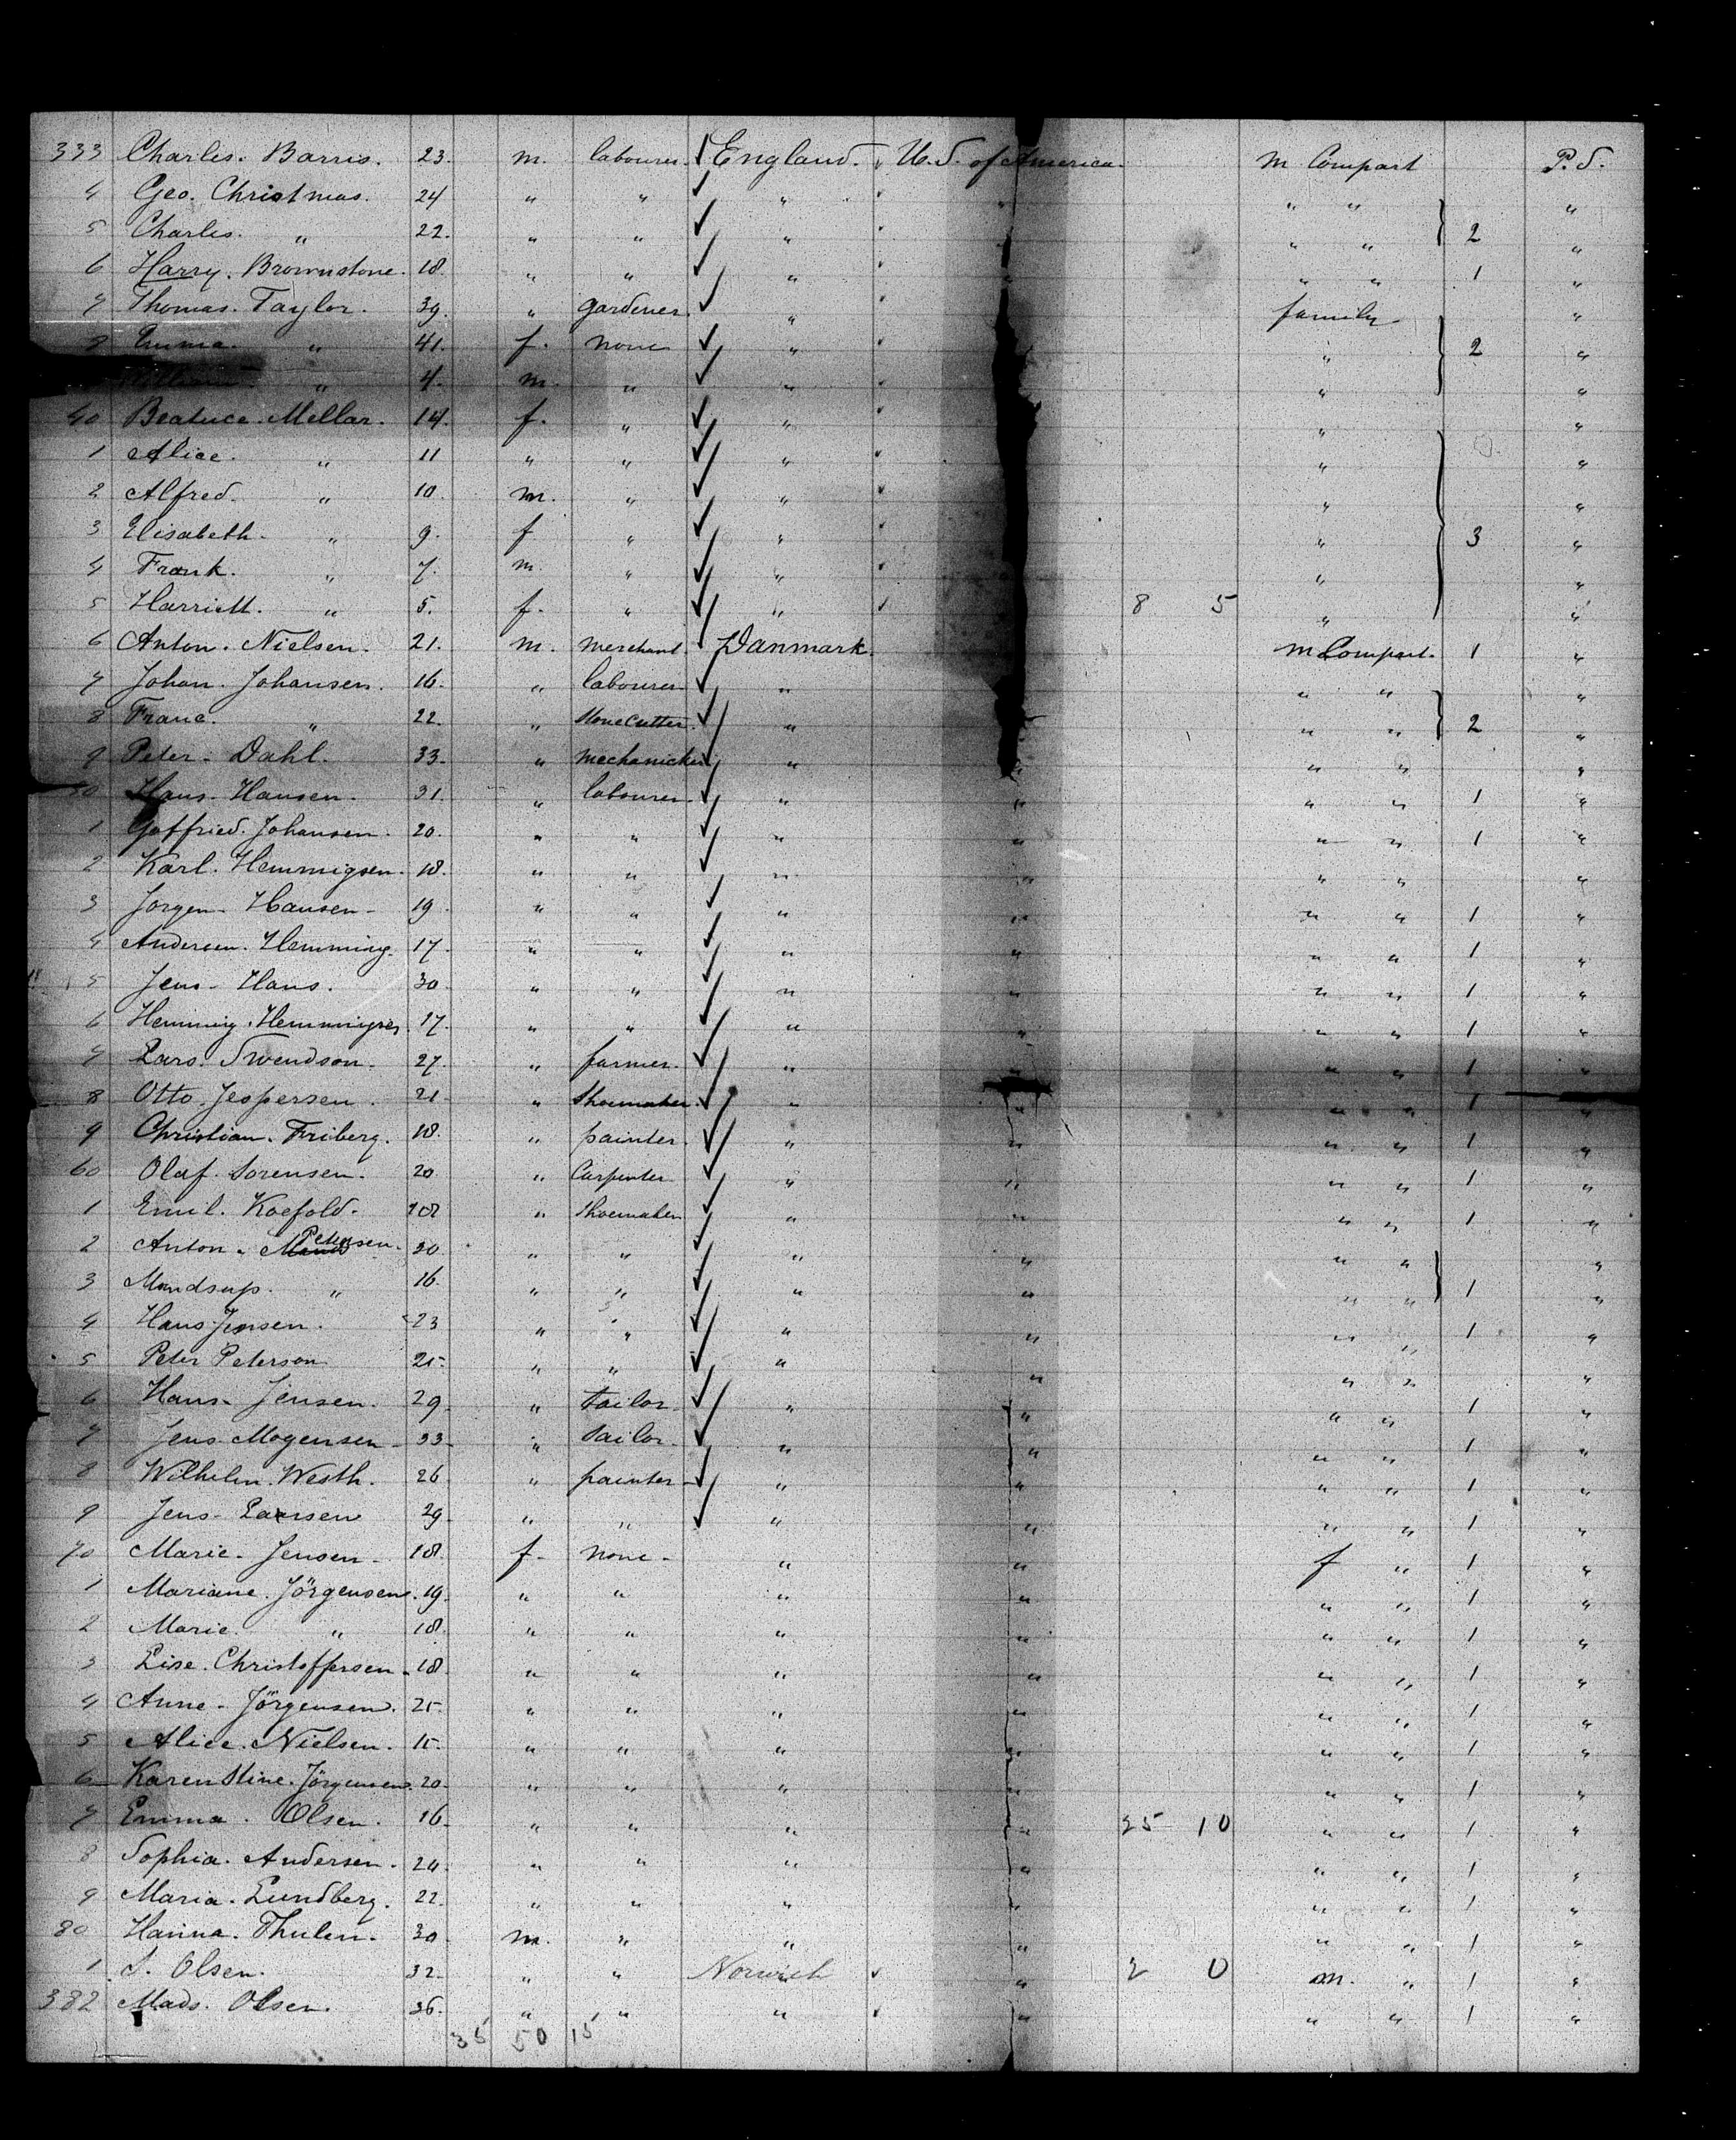 333 Charles. Barris. 23. m. labourer. England. U. S. of America. m Compart P. S.
4 Geo. Christmas. 24 " " " " " " "
5 Charles. " 22. " " " " " 2 "
6 Harry. Brownstone. 18. " " " " " " 1 "
7 Thomas. Taylor. 39. " gardener. " family "
8 Emma. " 41. f. none " " 2 "
" 4. m. " " " "
40 Beatrice. Mellar. 14. f. " " " "
1 Alice. " 11 " " " " "
2 Alfred. " 10. m. " " " "
3 Elisabeth. " 9. f " " " 3 "
4 Frank. " 7. m. " " " "
5 Harriett. " 5. f. " " 8 5 " "
6 Anton. Nielsen. 21. m. merchant Danmark. m Compart. 1 "
7 Johan. Johansen. 16. " labourer " " " "
8 Franc. " 22. " Stonecutter. " " " 2 "
9 Peter. Dahl. 33. " mechanicker " " " " "
50 Hans. Hansen. 31. " labourer " " " " 1 "
1 Gottfried. Johansen. 20. " " " " " " 1 "
2 Karl. Hemmigsen. 18. " " " " " " "
3 Jorgen. Hansen. 19. " " " " " " 1 "
4 Andersen. Hemming. 17. " " " " " " 1 "
5 Jens. Hans. 30 " " " " " " 1 "
6 Hemmig. Hemmigsen. 17. " " " " " " 1 "
7 Lars. Swendson. 27. " farmer. " " " 1 "
8 Otto. Jespersen. 21. " Shoemaker. " " " " 1 "
9 Christian. Friberg. 18. " painter. " " " " 1 "
60 Olaf. Sorensen. 20. " Carpenter " " " " 1 "
1 Emil. Koefold. 18 " Shoemaker " " " " 1 "
2 Anton. Petersen. 20 " " " " " " "
3 Mandsup. " 16. " " " " " " 1 "
4 Hans Jensen. 23 " " " " " " 1 "
5 Peter Peterson 25. " " " " " " "
6 Hans. Jensen. 29. " tailor. " " " " 1 "
7 Jens Mogensen 33. " tailor. " " " " 1 "
8 Wilhelm. Westh. 26. " painter. " " " " 1 "
9 Jens. Larsen 29. " " " " " " 1 "
70 Marie. Jensen. 18. f. none. " " f " 1 "
1 Mariane. Jörgensen. 19. " " " " " " 1 "
2 Marie. " 18. " " " " " " 1 "
3 Lise. Christoffersen. 18. " " " " " " 1 "
4 Anne. Jörgensen. 25. " " " " " " 1 "
5 Alice. Nielsen. 15. " " " " " " 1 "
6 Karenstine. Jörgensen. 20. " " " " " " 1 "
7 Emma. Olsen. 16. " " " " 25 10 " " 1 "
8 Sophia. Andersen. 24. " " " " " " 1 "
9 Maria. Lundberg. 22. " " " " " " 1 "
80 Hanna. Thulen. 30. m. " " " " " 1 "
1 S. Olsen. 32. " " Norwich " 2 0 m. " 1 "
382 Mads. Olsen. 36. " " " " " " 1 "
35 50 15